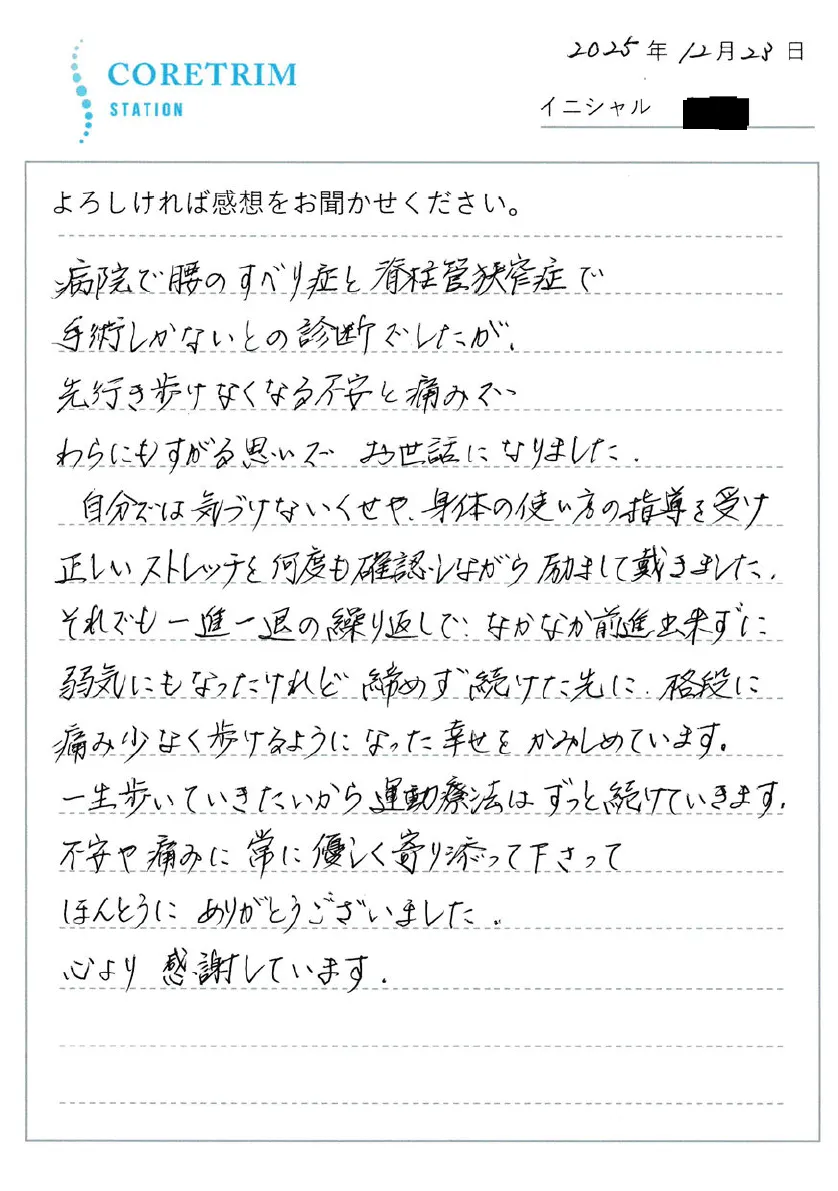 CORETRIM
STATION
2025年12月23日
イニシャル
よろしければ感想をお聞かせください。
病院で腰のすべり症と脊柱管狭窄症で
手術しかないとの診断でしたが、
先行き歩けなくなる不安と痛みで、
わらにもすがる思いで お世話になりました。
自分では気づけないくせや、身体の使い方の指導を受け
正しいストレッチを何度も確認しながら励まして戴きました。
それでも一進一退の繰り返しで、なかなか前進出来ずに
弱気にもなったけれど 締めず続けた先に、格段に
痛み少なく歩けるようになった幸せを かみしめています。
一生歩いていきたいから運動療法はずっと続けていきます。
不安や痛みに常に優しく寄り添って下さって
ほんとうに ありがとうございました。
心より 感謝しています。